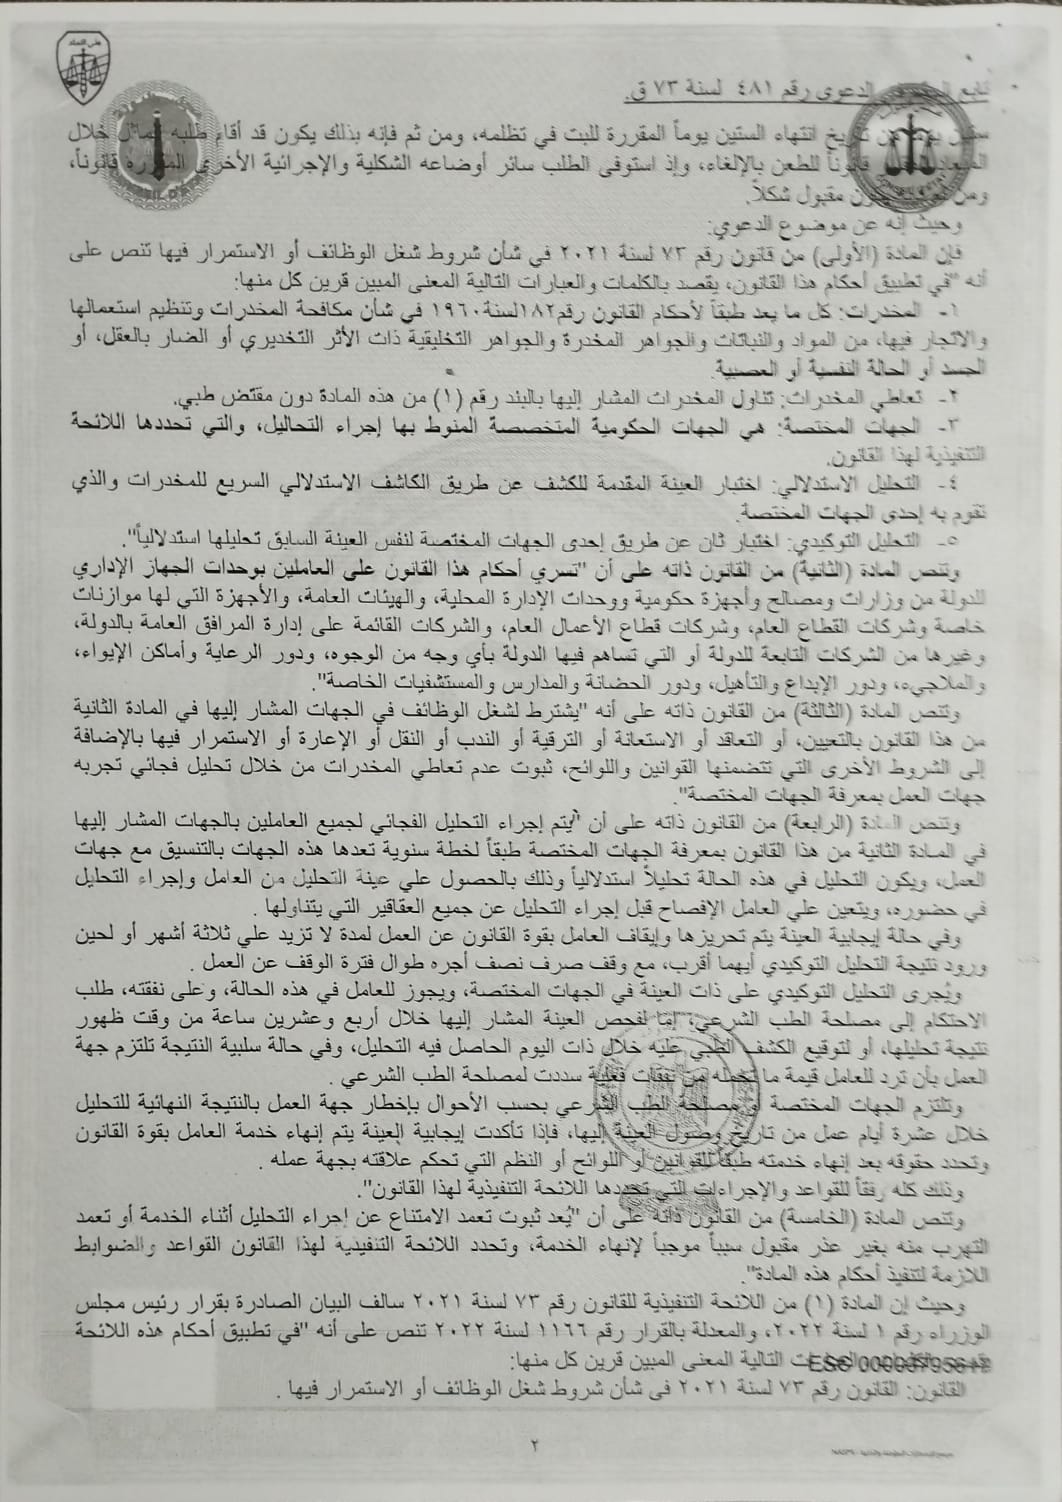 تابع الدعوى رقم ٤٨١ لسنة ٧٣ ق.
من تاريخ انتهاء الستين يوماً المقررة للبت في تظلمه، ومن ثم فإنه بذلك يكون قد أقام طلبه خلال
قانوناً للطعن بالإلغاء، وإذ استوفى الطلب سائر أوضاعه الشكلية والإجرائية الأخرى المقررة قانوناً،
ومن مقبول شكلاً.
وحيث إنه عن موضوع الدعوي:
فإن المادة (الأولى) من قانون رقم ٧٣ لسنة ٢٠٢١ في شأن شروط شغل الوظائف أو الاستمرار فيها تنص على
أنه "في تطبيق أحكام هذا القانون، يقصد بالكلمات والعبارات التالية المعنى المبين قرين كل منها:
١- المخدرات: كل ما يعد طبقاً لأحكام القانون رقم١٨٢لسنة١٩٦٠ في شأن مكافحة المخدرات وتنظيم استعمالها
والاتجار فيها، من المواد والنباتات والجواهر المخدرة والجواهر التخليقية ذات الأثر التخديري أو الضار بالعقل، أو
الجسد أو الحالة النفسية أو العصبية.
٢- تعاطي المخدرات: تناول المخدرات المشار إليها بالبند رقم (١) من هذه المادة دون مقتض طبي.
٣- الجهات المختصة: هي الجهات الحكومية المتخصصة المنوط بها إجراء التحاليل، والتي تحددها اللائحة
التنفيذية لهذا القانون.
٤- التحليل الاستدلالي: اختبار العينة المقدمة للكشف عن طريق الكاشف الاستدلالي السريع للمخدرات والذي
تقوم به إحدى الجهات المختصة.
٥- التحليل التوكيدي: اختبار ثان عن طريق إحدى الجهات المختصة لنفس العينة السابق تحليلها استدلالياً".
وتنص المادة (الثانية) من القانون ذاته على أن "تسري أحكام هذا القانون على العاملين بوحدات الجهاز الإداري
للدولة من وزارات ومصالح وأجهزة حكومية ووحدات الإدارة المحلية، والهيئات العامة، والأجهزة التي لها موازنات
خاصة وشركات القطاع العام، وشركات قطاع الأعمال العام، والشركات القائمة على إدارة المرافق العامة بالدولة،
وغيرها من الشركات التابعة للدولة أو التي تساهم فيها الدولة بأي وجه من الوجوه، ودور الرعاية وأماكن الإيواء،
والملاجيء، ودور الإيداع والتأهيل، ودور الحضانة والمدارس والمستشفيات الخاصة".
وتنص المادة (الثالثة) من القانون ذاته على أنه "يشترط لشغل الوظائف في الجهات المشار إليها في المادة الثانية
من هذا القانون بالتعيين، أو التعاقد أو الاستعانة أو الترقية أو الندب أو النقل أو الإعارة أو الاستمرار فيها بالإضافة
إلى الشروط الأخرى التي تتضمنها القوانين واللوائح، ثبوت عدم تعاطي المخدرات من خلال تحليل فجائي تجربه
جهات العمل بمعرفة الجهات المختصة".
وتنص المادة (الرابعة) من القانون ذاته على أن "يتم إجراء التحليل الفجائي لجميع العاملين بالجهات المشار إليها
في المادة الثانية من هذا القانون بمعرفة الجهات المختصة طبقاً لخطة سنوية تعدها هذه الجهات بالتنسيق مع جهات
العمل، ويكون التحليل في هذه الحالة تحليلاً استدلالياً وذلك بالحصول علي عينة التحليل من العامل وإجراء التحليل
في حضوره، ويتعين علي العامل الإفصاح قبل إجراء التحليل عن جميع العقاقير التي يتناولها .
وفي حالة إيجابية العينة يتم تحريزها وإيقاف العامل بقوة القانون عن العمل لمدة لا تزيد علي ثلاثة أشهر أو لحين
ورود نتيجة التحليل التوكيدي أيهما أقرب، مع وقف صرف نصف أجره طوال فترة الوقف عن العمل .
ويُجرى التحليل التوكيدي على ذات العينة في الجهات المختصة، ويجوز للعامل في هذه الحالة، وعلى نفقته، طلب
الاحتكام إلى مصلحة الطب الشرعي، إما لفحص العينة المشار إليها خلال أربع وعشرين ساعة من وقت ظهور
نتيجة تحليلها، أو لتوقيع الكشف الطبي عليه خلال ذات اليوم الحاصل فيه التحليل، وفي حالة سلبية النتيجة تلتزم جهة
العمل بأن ترد للعامل قيمة ما تحمله من نفقات فعلية سددت لمصلحة الطب الشرعي .
وتلتزم الجهات المختصة أو مصلحة الطب الشرعي بحسب الأحوال بإخطار جهة العمل بالنتيجة النهائية للتحليل
خلال عشرة أيام عمل من تاريخ وصول العينة إليها، فإذا تأكدت إيجابية العينة يتم إنهاء خدمة العامل بقوة القانون
وتحدد حقوقه بعد إنهاء خدمته طبقاً للقوانين أو اللوائح أو النظم التي تحكم علاقته بجهة عمله .
وذلك كله وفقاً للقواعد والإجراءات التي تحددها اللائحة التنفيذية لهذا القانون".
وتنص المادة (الخامسة) من القانون ذاته على أن "يُعد ثبوت تعمد الامتناع عن إجراء التحليل أثناء الخدمة أو تعمد
التهرب منه بغير عذر مقبول سبباً موجباً لإنهاء الخدمة، وتحدد اللائحة التنفيذية لهذا القانون القواعد والضوابط
اللازمة لتنفيذ أحكام هذه المادة".
وحيث إن المادة (١) من اللائحة التنفيذية للقانون رقم ٧٣ لسنة ٢٠٢١ سالف البيان الصادرة بقرار رئيس مجلس
الوزراء رقم ١ لسنة ٢٠٢٢، والمعدلة بالقرار رقم ١١٦٦ لسنة ٢٠٢٢ تنص على أنه "في تطبيق أحكام هذه اللائحة
التالية المعنى المبين قرين كل منها:
القانون: القانون رقم ٧٣ لسنة ٢٠٢١ فى شأن شروط شغل الوظائف أو الاستمرار فيها .
٢